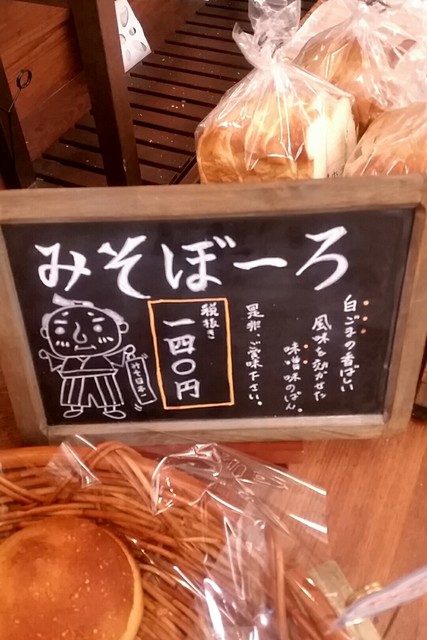 みそぼーろ
白ごまの香ばしい
風味を効かせた
味噌味のぱん。
是非、ご賞味下さい。
税抜き
一四〇円